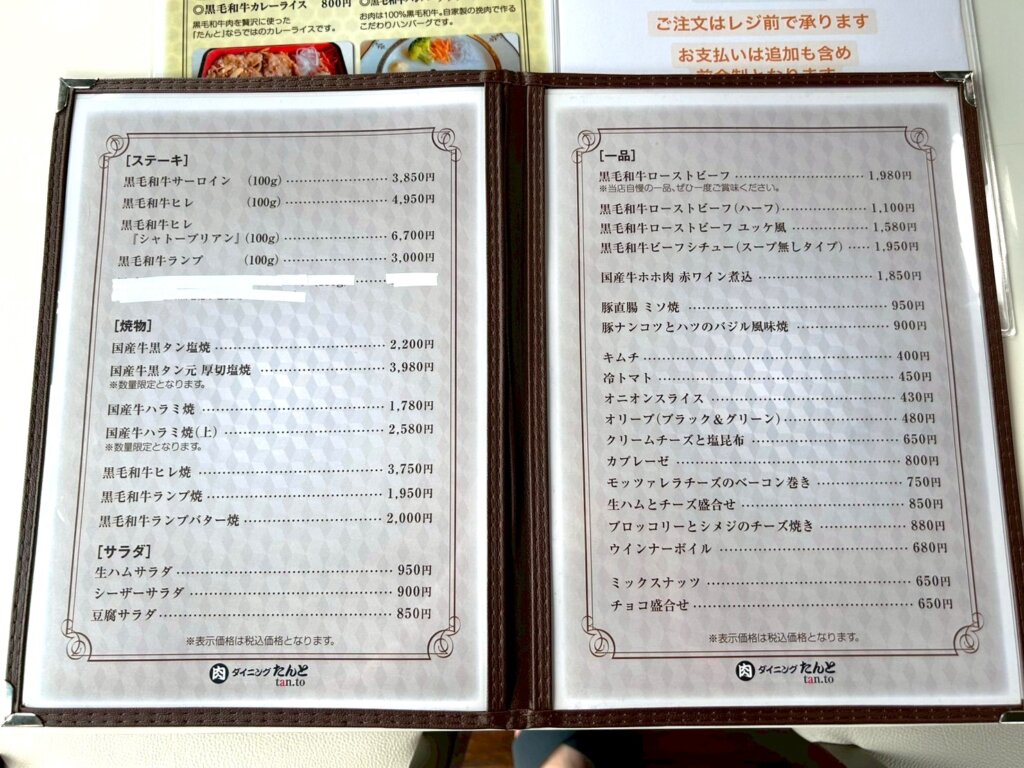 ◎黒毛和牛カレーライス 800円
黒毛和牛肉を贅沢に使った
「たんと」ならではのカレーライスです。
お肉は100%黒毛和牛。自家製の挽肉で作る
こだわりハンバーグです。
ご注文はレジ前で承ります
お支払いは追加も含め
[ステーキ]
黒毛和牛サーロイン (100g) 3,850円
黒毛和牛ヒレ (100g) 4,950円
黒毛和牛ヒレ
『シャトーブリアン』(100g) 6,700円
黒毛和牛ランプ (100g) 3,000円
[焼物]
国産牛黒タン塩焼 2,200円
国産牛黒タン元 厚切塩焼 3,980円
※数量限定となります。
国産牛ハラミ焼 1,780円
国産牛ハラミ焼(上) 2,580円
※数量限定となります。
黒毛和牛ヒレ焼 3,750円
黒毛和牛ランプ焼 1,950円
黒毛和牛ランプバター焼 2,000円
[サラダ]
生ハムサラダ 950円
シーザーサラダ 900円
豆腐サラダ 850円
※表示価格は税込価格となります。
肉 ダイニング たんと
tan.to
[一品]
黒毛和牛ローストビーフ 1,980円
※当店自慢の一品、ぜひ一度ご賞味ください。
黒毛和牛ローストビーフ(ハーフ) 1,100円
黒毛和牛ローストビーフ ユッケ風 1,580円
黒毛和牛ビーフシチュー(スープ無しタイプ) 1,950円
国産牛ホホ肉 赤ワイン煮込 1,850円
豚直腸 ミソ焼 950円
豚ナンコツとハツのバジル風味焼 900円
キムチ 400円
冷トマト 450円
オニオンスライス 430円
オリーブ(ブラック&グリーン) 480円
クリームチーズと塩昆布 650円
カプレーゼ 800円
モッツァレラチーズのベーコン巻き 750円
生ハムとチーズ盛合せ 850円
ブロッコリーとシメジのチーズ焼き 880円
ウインナーボイル 680円
ミックスナッツ 650円
チョコ盛合せ 650円
※表示価格は税込価格となります。
肉 ダイニング たんと
tan.to